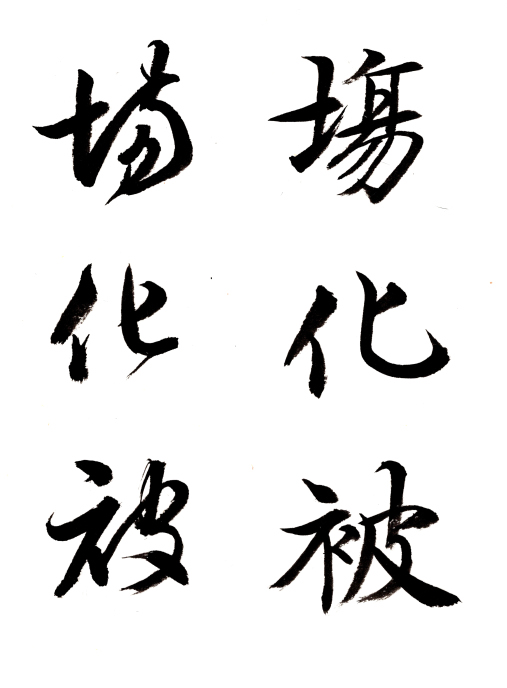 場
化
被
場
化
被